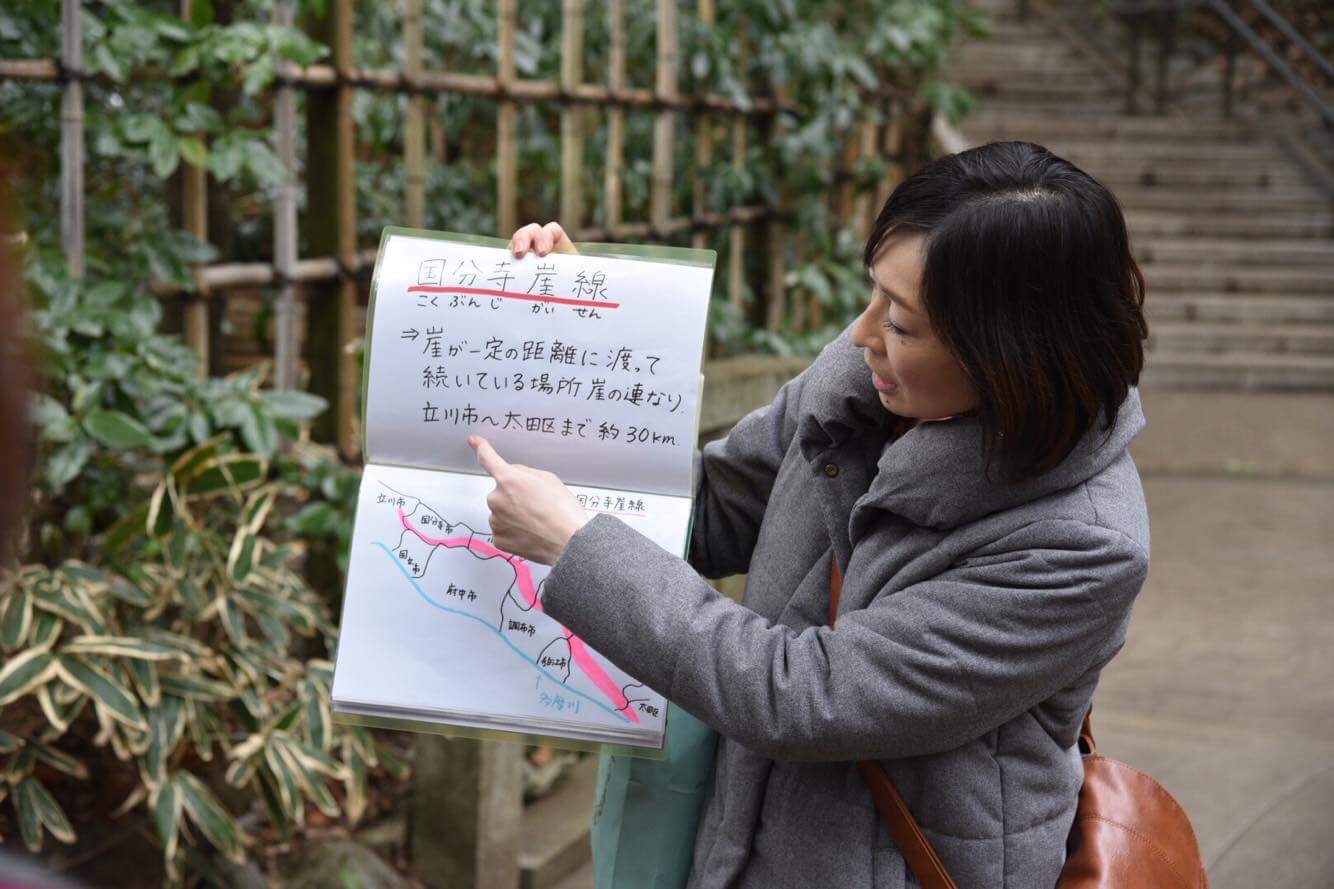 国分寺崖線
こくぶんじ がい せん
⇒崖が一定の距離に渡って
続いている場所 崖の連なり.
立川市〜太田区まで約30km.
国分寺崖線
立川市
国分寺市
国立市
府中市
調布市
狛江市
太田区
↑
多摩川